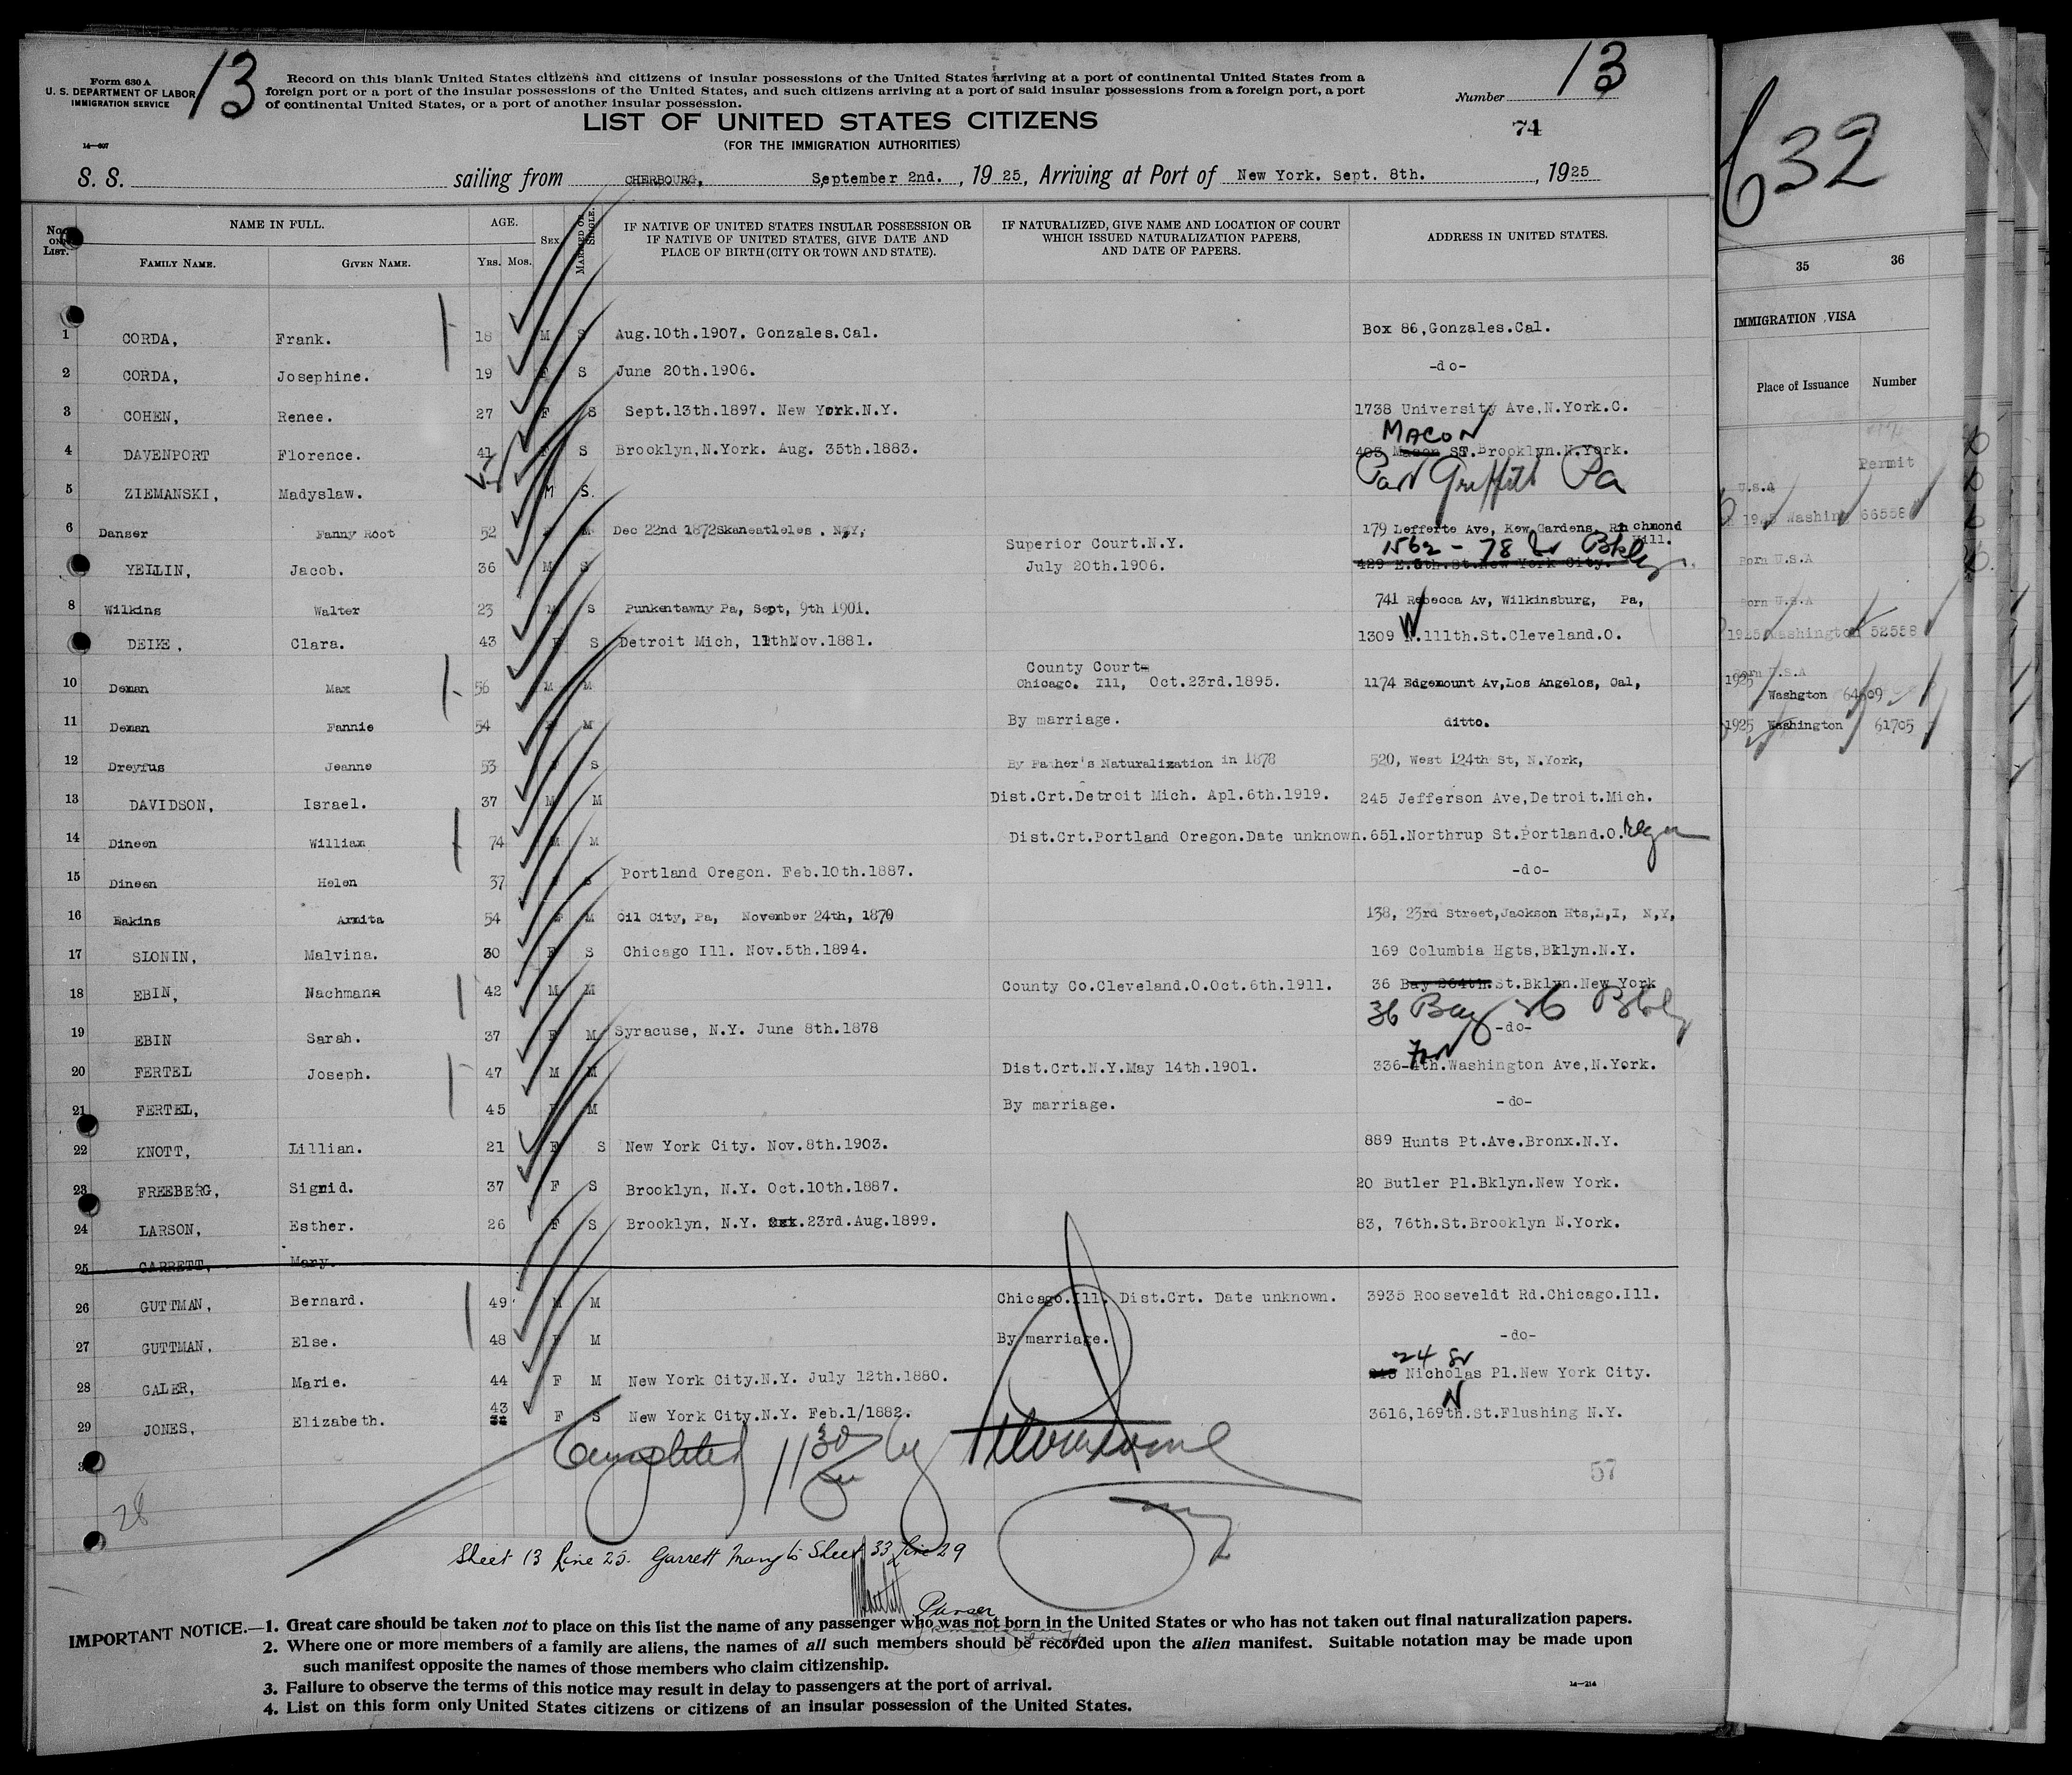 Form 630 A
U. S. DEPARTMENT OF LABOR
IMMIGRATION SERVICE
13
Record on this blank United States citizens and citizens of insular possessions of the United States arriving at a port of continental United States from a
foreign port or a port of the insular possessions of the United States, and such citizens arriving at a port of said insular possessions from a foreign port, a port
of continental United States, or a port of another insular possession.
Number 13
LIST OF UNITED STATES CITIZENS
74
(FOR THE IMMIGRATION AUTHORITIES)
S. S. sailing from CHERBOURG, September 2nd. , 19 25, Arriving at Port of New York. Sept. 8th. , 1925
No. ON LIST. NAME IN FULL. FAMILY NAME. GIVEN NAME. AGE. Yrs. Mos. SEX MARRIED OR SINGLE. IF NATIVE OF UNITED STATES INSULAR POSSESSION OR IF NATIVE OF UNITED STATES, GIVE DATE AND PLACE OF BIRTH (CITY OR TOWN AND STATE). IF NATURALIZED, GIVE NAME AND LOCATION OF COURT WHICH ISSUED NATURALIZATION PAPERS, AND DATE OF PAPERS. ADDRESS IN UNITED STATES.
1 CORDA, Frank. 18 M S Aug.10th.1907. Gonzales.Cal. Box 86,Gonzales.Cal.
2 CORDA, Josephine. 19 F S June 20th.1906. -do-
3 COHEN, Renee. 27 F S Sept.13th.1897. New York.N.Y. 1738 University Ave,N.York.C.
MACON
4 DAVENPORT Florence. 41 S Brooklyn,N.York. Aug. 35th.1883. 403 Macon ST.Brooklyn.N.York.
5 ZIEMANSKI, Madyslaw. M S. Port Griffith Pa
6 Danser Fanny Root 52 F M Dec 22nd 1872 Skaneatleles . N,Y, 179 Lefferte Ave, Kew Gardens, Richmond Hill.
Superior Court.N.Y. 1562 - 78 St Bklyn.
YELLIN, Jacob. 36 M S July 20th.1906. 429 E.6th.St.New York City.
8 Wilkins Walter 23 M S Punkentawny Pa, Sept, 9th 1901. 741 Rebecca Av, Wilkinsburg, Pa,
DEIKE, Clara. 43 F S Detroit Mich, 11thNov.1881. 1309 N.111th.St.Cleveland.O.
County Court-
10 Deman Max 56 M M Chicago. Ill, Oct.23rd.1895. 1174 Edgemount Av,Los Angelos, Cal,
11 Deman Fannie 54 M By marriage. ditto.
12 Dreyfus Jeanne 53 F S By Father's Naturalization in 1878 520, West 124th St, N.York,
13 DAVIDSON, Israel. 37 M M Dist.Crt.Detroit Mich. Apl.6th.1919. 245 Jefferson Ave,Detroit.Mich.
14 Dineen William 74 M M Dist.Crt.Portland Oregon.Date unknown. 651.Northrup St.Portland.O.regon
15 Dineen Helen 37 S Portland Oregon. Feb.10th.1887. -do-
16 Eakins Armita 54 F M Oil City, Pa, November 24th, 1870 138, 23rd Street,Jackson Hts,L,I, N,Y,
17 SLONIN, Malvina. 30 F S Chicago Ill. Nov.5th.1894. 169 Columbia Hgts,Bklyn.N.Y.
18 EBIN, Nachmann 42 M M County Co.Cleveland.O.Oct.6th.1911. 36 Bay 264th.St.Bklyn.New York
36 Bay 26 Bkly
19 EBIN Sarah. 37 F M Syracuse, N.Y. June 8th.1878 -do-
20 FERTEL Joseph. 47 M M Dist.Crt.N.Y.May 14th.1901. 336-4th.Washington Ave,N.York.
21 FERTEL, 45 F M By marriage. -do-
22 KNOTT, Lillian. 21 F S New York City. Nov.8th.1903. 889 Hunts Pt.Ave.Bronx.N.Y.
23 FREEBERG, Sigrid. 37 F S Brooklyn, N.Y. Oct.10th.1887. 20 Butler Pl.Bklyn.New York.
24 LARSON, Esther. 26 F S Brooklyn, N.Y. Oct.23rd.Aug.1899. 83, 76th.St.Brooklyn N.York.
25 GARRETT, Mary.
26 GUTTMAN, Bernard. 49 M M Chicago.Ill. Dist.Crt. Date unknown. 3935 Rooseveldt Rd.Chicago.Ill.
27 GUTTMAN, Else. 48 F M By marriage. -do-
24 St
28 GALER, Marie. 44 F M New York City.N.Y. July 12th.1880. Nicholas Pl.New York City.
29 JONES, Elizabeth. 43 F S New York City.N.Y. Feb.1/1882. 3616,169th.St.Flushing N.Y.
Completed 11 30 am by
57
28
Sheet 13 line 25. Garrett Mary to Sheet 33 line 29
Purser
IMPORTANT NOTICE.—1. Great care should be taken not to place on this list the name of any passenger who was not born in the United States or who has not taken out final naturalization papers.
2. Where one or more members of a family are aliens, the names of all such members should be recorded upon the alien manifest. Suitable notation may be made upon
such manifest opposite the names of those members who claim citizenship.
3. Failure to observe the terms of this notice may result in delay to passengers at the port of arrival.
4. List on this form only United States citizens or citizens of an insular possession of the United States.
14—214
632
35 36
IMMIGRATION VISA
Place of Issuance Number
Permit
U.S.A
1925 Washing 66558
Born U.S.A
Born U.S.A
1925 Washington 52558
Born U.S.A
1925 Washgton 64609
1925 Washington 61705